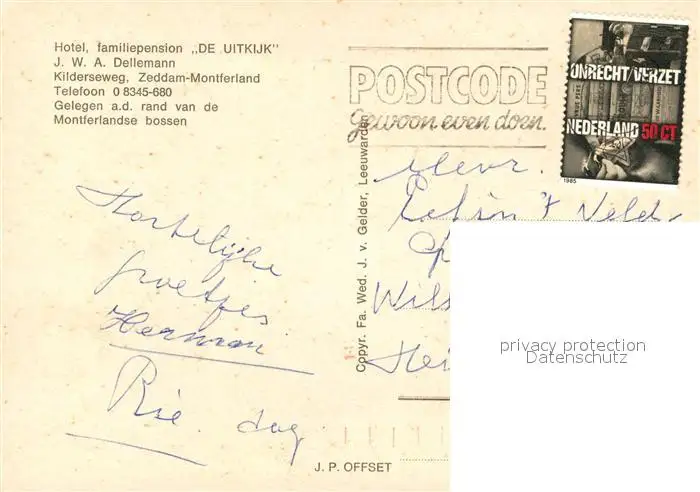 Hotel, familiepension „DE UITKIJK"
J. W. A. Dellemann
Kilderseweg, Zeddam-Montferland
Telefoon 0 8345-680
Gelegen a.d. rand van de
Montferlandse bossen
Hartelijke
groetjes
Herman
Rie. dag
Copyr. Fa. Wed. J. v. Gelder, Leeuwarden
J. P. OFFSET
POSTCODE
Gewoon even doen.
ONRECHT/VERZET
NEDERLAND 50 CT
1985
Mevr.
't Veld
privacy protection
Datenschutz